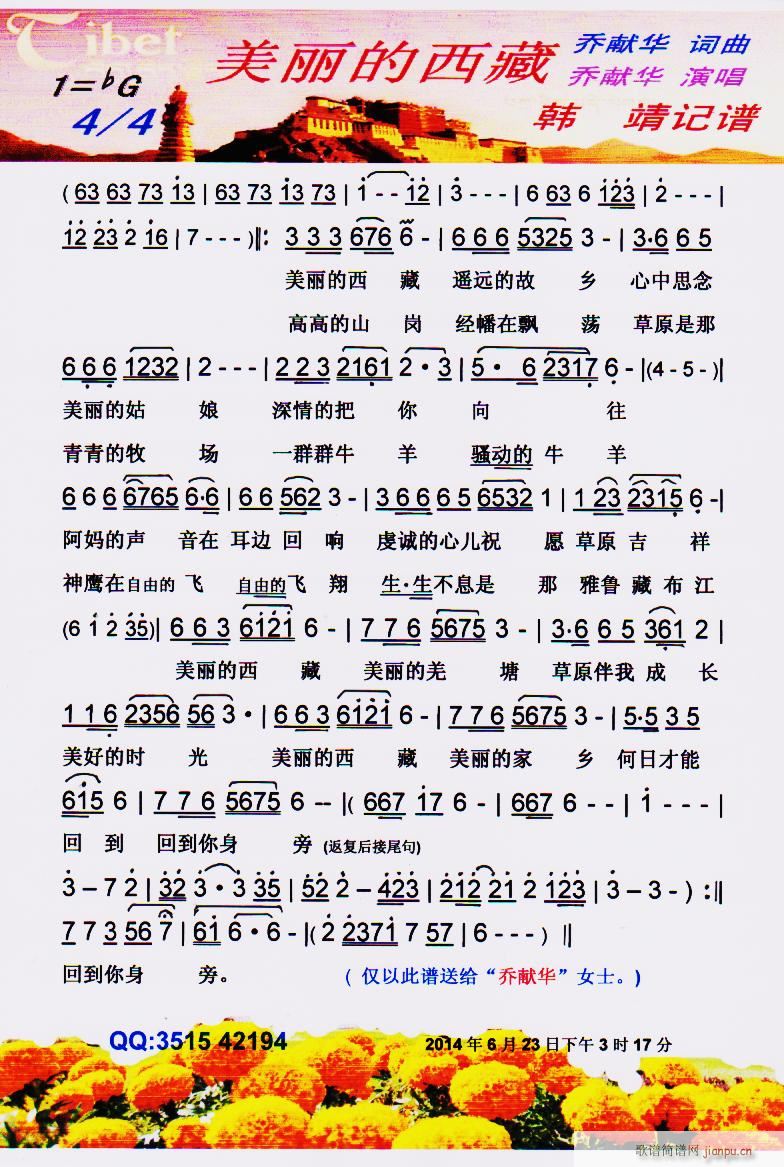 Tibet
美丽的西藏
乔献华 词曲
1=♭G
乔献华 演唱
4/4
韩 靖记谱
( 63 63 73 i3 | 63 73 i3 73 | i - - i2 | 3 - - - | 6 63 6 i23 | 2 - - - |
i2 23 2 i6 | 7 - - - )‖: 3 3 3 676 6 - | 6 6 6 5325 3 - | 3·6 6 5
美丽的西 藏 遥远的故 乡 心中思念
高高的山 岗 经幡在飘 荡 草原是那
6 6 6 1232 | 2 - - - | 2 2 3 2161 2·3 | 5· 6 2317 6 - |(4 - 5 -)|
美丽的姑 娘 深情的把 你 向 往
青青的牧 场 一群群牛 羊 骚动的 牛 羊
6 6 6 6765 6·6 | 6 6 562 3 - | 3 6 6 6 5 6532 1 | 1 23 2315 6 - |
阿妈的声 音在 耳边 回 响 虔诚的心儿祝 愿 草原 吉 祥
神鹰在自由的 飞 自由的飞 翔 生·生不息是 那 雅鲁 藏 布 江
(6 i 2 35)| 6 6 3 6i2i 6 - | 7 7 6 5675 3 - | 3·6 6 5 361 2 |
美丽的西 藏 美丽的羌 塘 草原伴我 成 长
1 1 6 2356 56 3· | 6 6 3 6i2i 6 - | 7 7 6 5675 3 - | 5·5 3 5
美好的时 光 美丽的西 藏 美丽的家 乡 何日才能
6i5 6 | 7 7 6 5675 6 -- |( 667 i7 6 - | 667 6 - - | i - - - |
回 到 回到你身 旁 (返复后接尾句)
3 – 7 2 | 32 3·3 35 | 52 2 – 423 | 212 21 2 123 | 3 – 3 - ) :‖
7 7 3 56 7 | 6i 6·6 - |( 2 2371 7 57 | 6 - - - ) ‖
回到你身 旁。 ( 仅以此谱送给“乔献华”女士。)
QQ:3515 42194 2014 年 6 月 23 日下午 3 时 17 分
歌谱简谱网 jianpu.cn